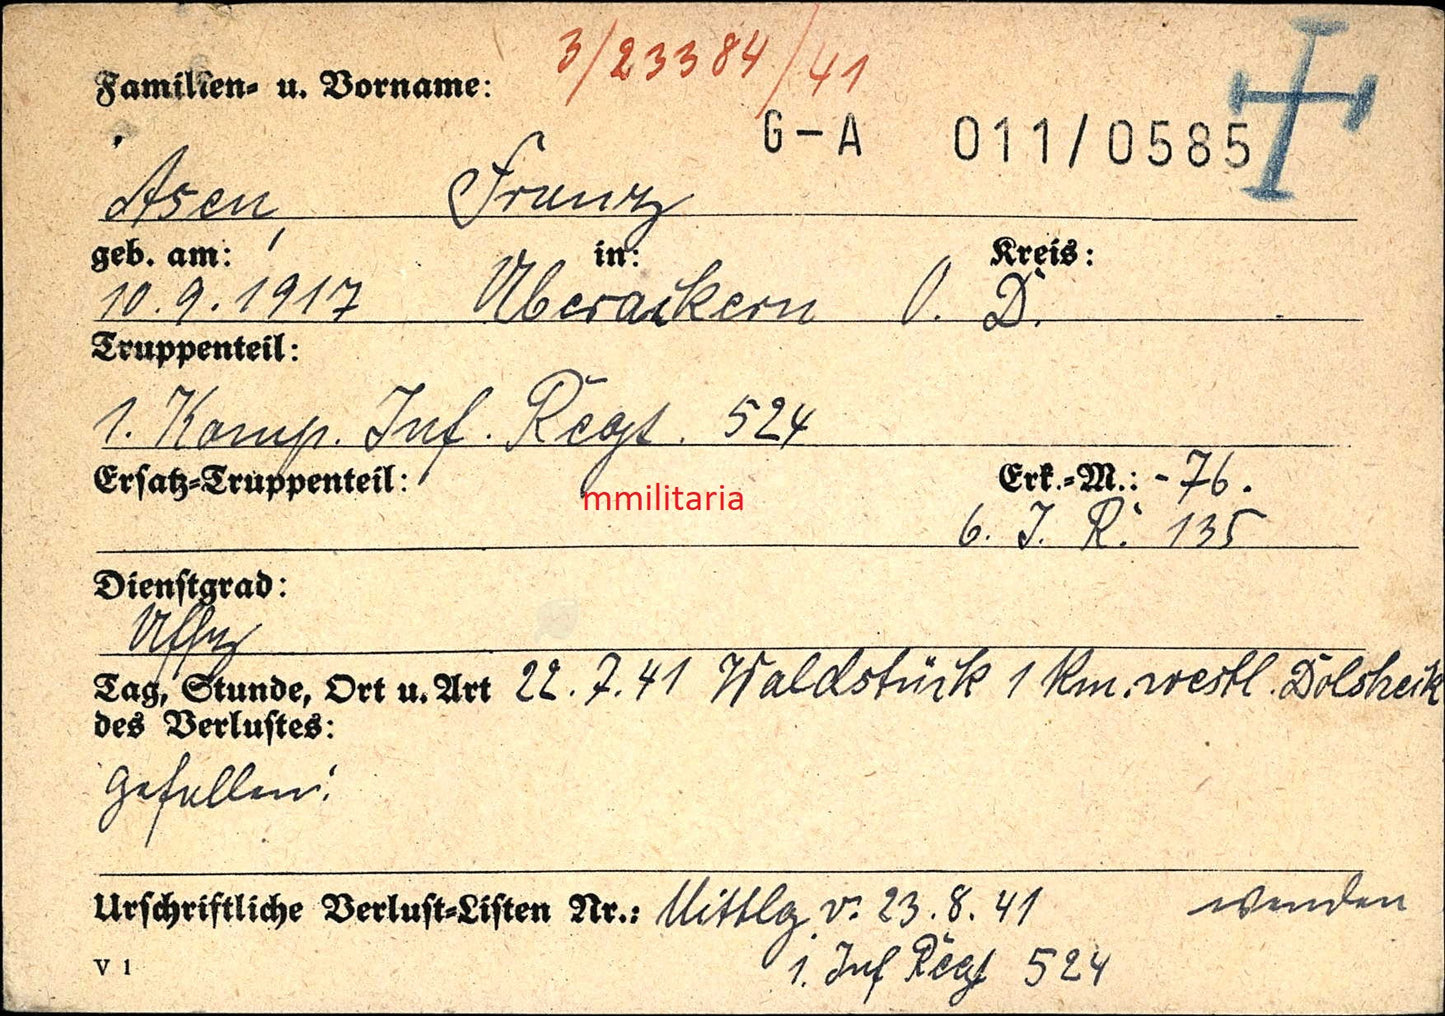 3/23384/41
Familien- u. Vorname:
G-A 011/0585
Asen, Franz
geb. am: in: Kreis:
10.9.1917 Überackern O. D.
Truppenteil:
1. Komp. Inf. Regt. 524
Ersatz-Truppenteil: Erk.-M.: -76.
mmilitaria
6. J. R. 135
Dienstgrad:
Uffz
Tag, Stunde, Ort u. Art 22.7.41 Waldstück 1 km. westl.
des Verlustes:
gefallen!
Urschriftliche Verlust-Listen Nr.: Mittlg v. 23.8.41 wenden
V 1
1. Inf Regt 524